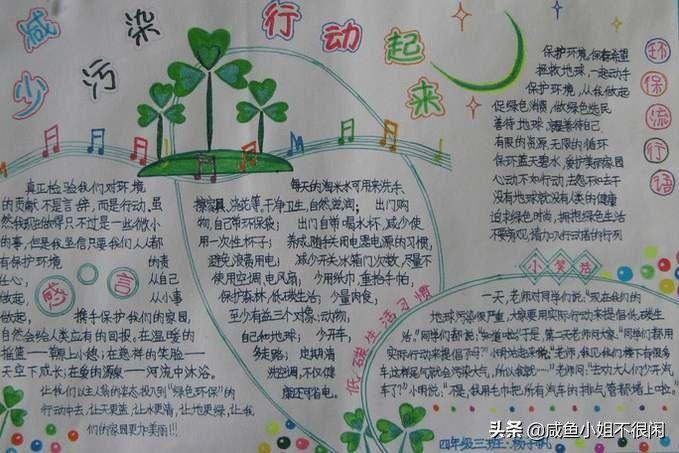 减少污染行动起来
真正检验我们对环境
的贡献不是言辞,而是行动,虽
然我现在做得只不过是一些微小
的事,但是我坚信只要我们人人都
有保护环境的责
任心,从自己
做起,从小事
做起,携手保护我们的家园,
自然会给人类应有的回报。在温暖的
摇篮——草原上小憩;在慈祥的笑脸——
天空下成长;在爱的源泉——河流中沐浴。
让我们以主人翁的姿态投入到“绿色环保”的
行动中去,让天更蓝,让水更清,让地更绿,让我
们的家园更加美丽!!!
感言
每天的淘米水可用来洗手、
擦家具、浇花等。干净卫生,自然滋润;出门购
物,自己带环保袋;出门自带喝水杯,减少使
用一次性杯子;养成随手关用电器电源的习惯,
避免浪费用电;减少开冰箱门次数,尽量不
使用空调、电风扇;少用纸巾,重拾手帕,
保护森林,低碳生活;少量肉食,
至少有益三个对象:动物,
自己和地球;少开车,
多走路;定期清
洗空调,不仅健
康还可省电。
低碳生活习惯
环保流行语
保护环境,保存希望
拯救地球,一起动手
保护环境,从我做起
促绿色消费,做绿色选民
善待地球,就是善待自己
有限的资源,无限的循环
保环蓝天碧水,爱护美的家园
心动不如行动,去怨不如去干
没有地球就没有人类的健康
追求绿色时尚,拥抱绿色生活
不要旁观,请加入行动者的行列
小笑话
一天,老师对同学们说:“现在我们的
地球污染很严重,大家要用实际行动来提倡低碳生
活。”同学们都说:“知道啦!”于是,第二天老师问大家:“同学们都用
实际行动来提倡了吗?”小明站起来说:“老师,我见我们楼下有很多
车,这种尾气就会污染大气,所以我就……”老师问:“生功大人们少开汽
车了?”小明说:“不是,我用毛巾把所有汽车的排气管都堵上啦。”
四年级三班:杨子帆
头条 @咸鱼小姐不很闲